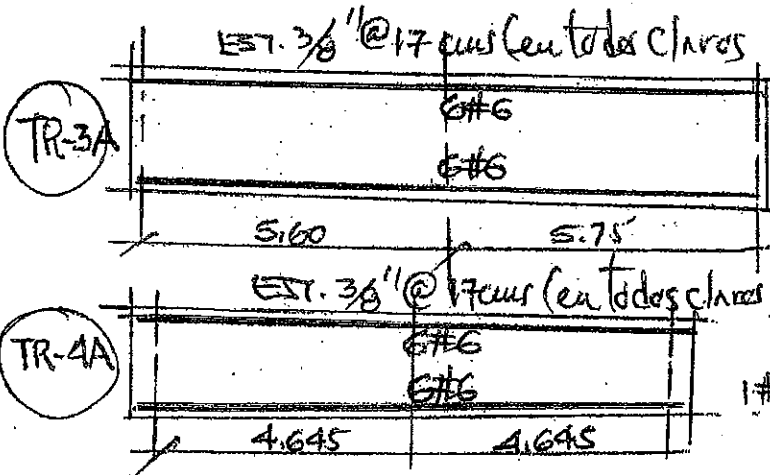 EST. 3/8"@17 cms (en todos claros
TR-3A
6#6
6#6
5.60 5.75
EST. 3/8"@17cms (en todos claros
TR-4A
6#6
6#6
1#
4.645 4.645